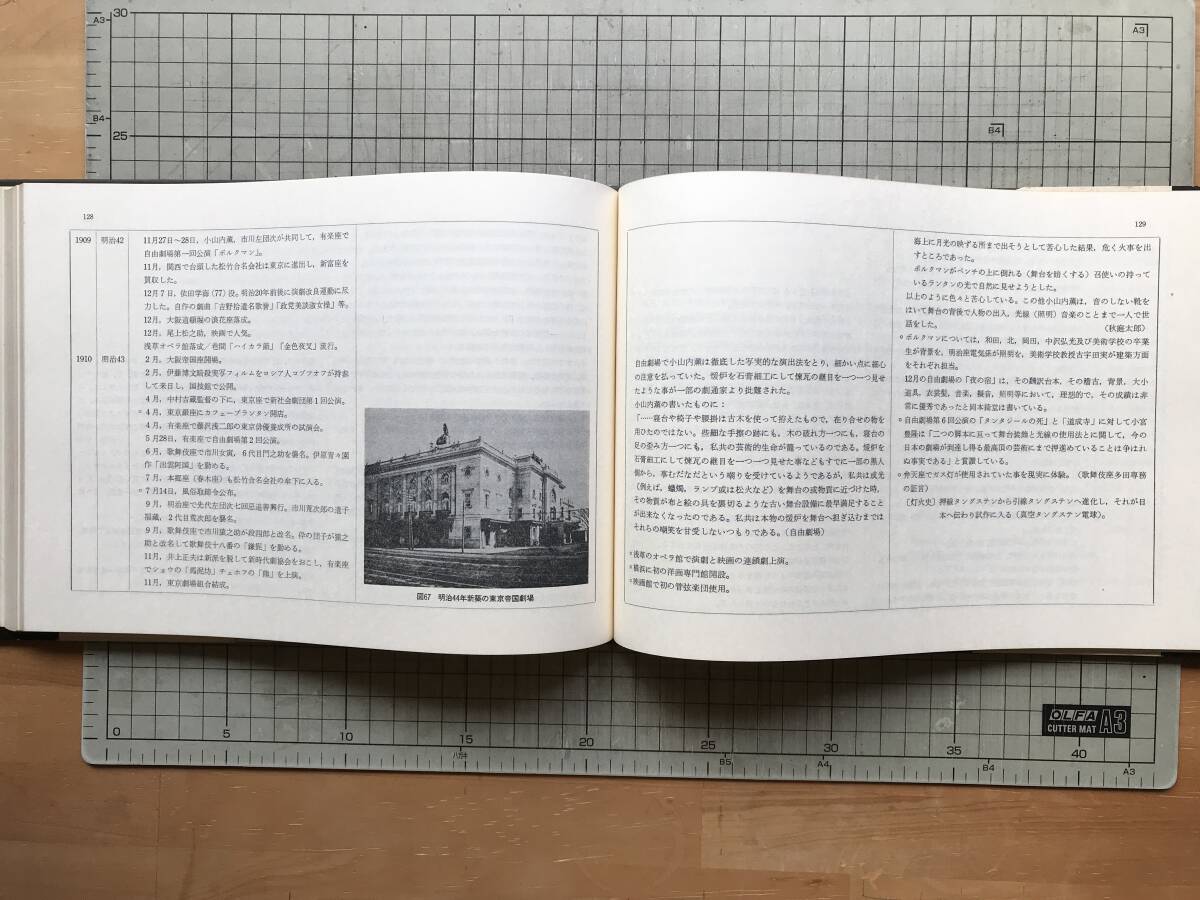 128
1909 明治42 11月27日〜28日，小山内薫，市川左団次が共同して，有楽座で
自由劇場第一回公演「ボルクマン」。
11月，関西で台頭した松竹合名会社は東京に進出し，新富座を
買収した。
12月7日，依田学海（77）歿。明治20年前後に演劇改良運動に尽
力した。自作の戯曲「吉野拾遺名歌誉」「政党美談淑女操」等。
12月，大阪道頓堀の浪花座落成。
12月，尾上松之助，映画で人気。
浅草オペラ館落成／巷間「ハイカラ節」「金色夜叉」流行。
1910 明治43 2月，大阪帝国座開場。
2月，伊藤博文暗殺実写フィルムをロシア人コブツオフが持参
して来日し，国技館で公開。
4月，中村吉蔵監督の下に，東京座で新社会劇団第1回公演。
4月，東京銀座にカフェープランタン開店。
4月，有楽座で藤沢浅二郎の東京俳優養成所の試演会。
5月28日，有楽座で自由劇場第2回公演。
6月，歌舞伎座で市川女寅，6代目門之助を襲名。伊原青々園
作「出雲阿国」を勤める。
7月，本郷座（春木座）も松竹合名会社の傘下に入る。
7月14日，風俗取締令公布。
9月，明治座で先代左団次七回忌追善興行。市川荒次郎の遺子
福蔵，2代目荒次郎を襲名。
9月，歌舞伎座で市川猿之助が段四郎と改名。伜の団子が猿之
助と改名して歌舞伎十八番の「鎌髭」を勤める。
11月，井上正夫は新派を脱して新時代劇協会をおこし，有楽座
でショウの「馬泥坊」チェホフの「熊」を上演。
11月，東京劇場組合結成。
図67 明治44年新築の東京帝国劇場
129
自由劇場で小山内薫は徹底した写実的な演出法をとり，細かい点に細心
の注意を払っていた。煖炉を石膏細工にして煉瓦の継目を一つ一つ見せ
たような事が一部の劇通家より批難された。
小山内薫の書いたものに：
「……寝台や椅子や腰掛は古木を使って拵えたもので，在り合せの物を
用ひたのではない。些細な手擦の跡にも，木の破れ方一つにも，寝台の
足の歪み方一つにも，私共の芸術的生命が籠っているのである。煖炉を
石膏細工にして煉瓦の継目を一つ一つ見せた事などもすでに一部の黒人
側から，事むだなだという嘲りを受けているようであるが，私共は成光
（例えば，蠟燭，ランプ或は松火など）を舞台の或物質に近づけた時，
その物質が布と絵の具を裏切るような古い舞台設備に最早満足すること
が出来なくなったのである。私共は本物の煖炉を舞台へ担ぎ込むまでは
それらの嘲笑を甘受しないつもりである。（自由劇場）
浅草のオペラ館で演劇と映画の連鎖劇上演。
横浜に初の洋画専門館開設。
映画館で初の管弦楽団使用。
海上に月光の映ずる所まで出そうとして苦心した結果，危く火事を出
すところであった。
ボルクマンがベンチの上に倒れる（舞台を暗くする）召使いの持って
いるランタンの光で自然に見せようとした。
以上のように色々と苦心している。この他小山内薫は，音のしない靴を
はいて舞台の背後で人物の出入，光線（照明）音楽のことまで一人で世
話をした。 （秋庭太郎）
ボルクマンについては，和田，北，岡田，中沢弘光及び美術学校の卒業
生が背景を，明治座電気係が照明を，美術学校教授古宇田実が建築方面
をそれぞれ担当。
12月の自由劇場の「夜の宿」は，その飜訳台本，その稽古，背景，大小
道具，衣裳鬘，音楽，擬音，照明等において，理想的で，その成績は非
常に優秀であったと岡本綺堂は書いている。
自由劇場第6回公演の「タンタジールの死」と「道成寺」に対して小宮
豊隆は「二つの脚本に亘って舞台装飾と光線の使用法とに関して，今の
日本の劇場が到達し得る最高頂の芸術にまで押進めていることは争はれ
ぬ事実である」と賞讃している。
弁天座でガス灯が使用されていた事を現実に体験。（歌舞伎座多田専務
の証言）
〔灯火史〕押線タングステンから引線タングステンへ進化し，それが日
本へ伝わり試作に入る（真空タングステン電球）。
A3 30
B4
25
A3
B4
0 5 10 15 20 25 30 35 40
八ッ切
B5 A4 B4 A3
OLFA A3
CUTTER MAT